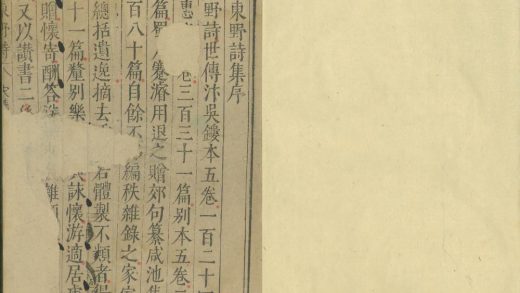 東野詩集序
野詩世傳汴吳鏤本五卷一百二十四
惠 卷三百三十一篇别本五卷三
篇蜀 蹇濬用退之贈郊句纂咸池集
百八十篇自餘不 編秩雜錄之家家
總括遺逸摘去 若體製不類者得
十一篇釐别樂 詠懷游適居處
贈懷寄酬答送 雜題
又以讃書二